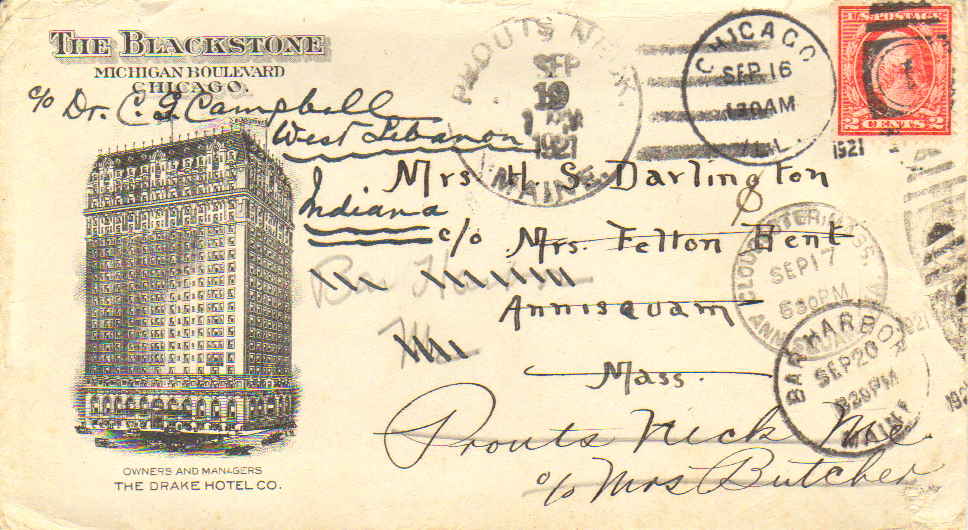 THE BLACKSTONE
MICHIGAN BOULEVARD
CHICAGO.
c/o Dr. C. G. Campbell
West Lebanon
Indiana
PROUTS NECK.
SEP
19
1921
MAINE.
CHICAGO
SEP 16
130AM
ILL.
1921
U.S. POSTAGE
2 CENTS 2
Mrs H. S. Darlington
c/o Mrs. Felton Bent
Annisquam
Mass.
Bar Harbor
Me
GLOUCESTER, MASS.
SEP 17
530PM
ANNISQUAM
BAR HARBOR
SEP 20
830PM
MAINE
1921
1921
Prouts Neck Me.
c/o Mrs Butcher
OWNERS AND MANAGERS
THE DRAKE HOTEL CO.